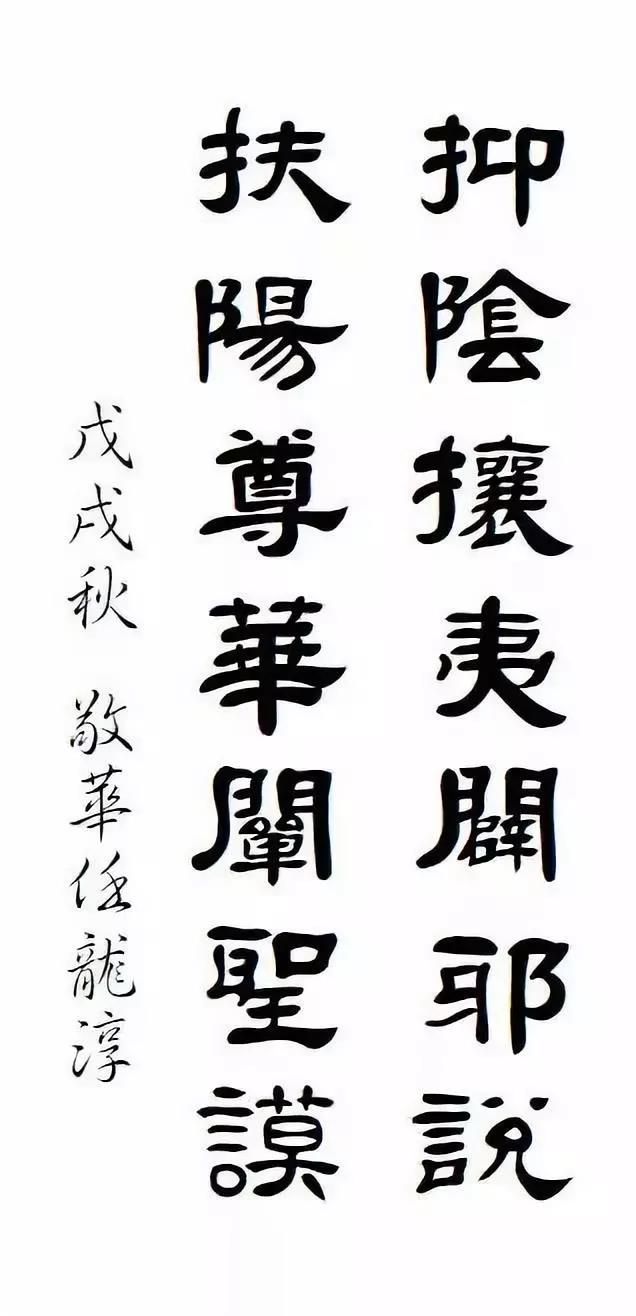 抑陰攘夷闢邪說
扶陽尊華闡聖謨
戊戌秋 敬華任龍淳